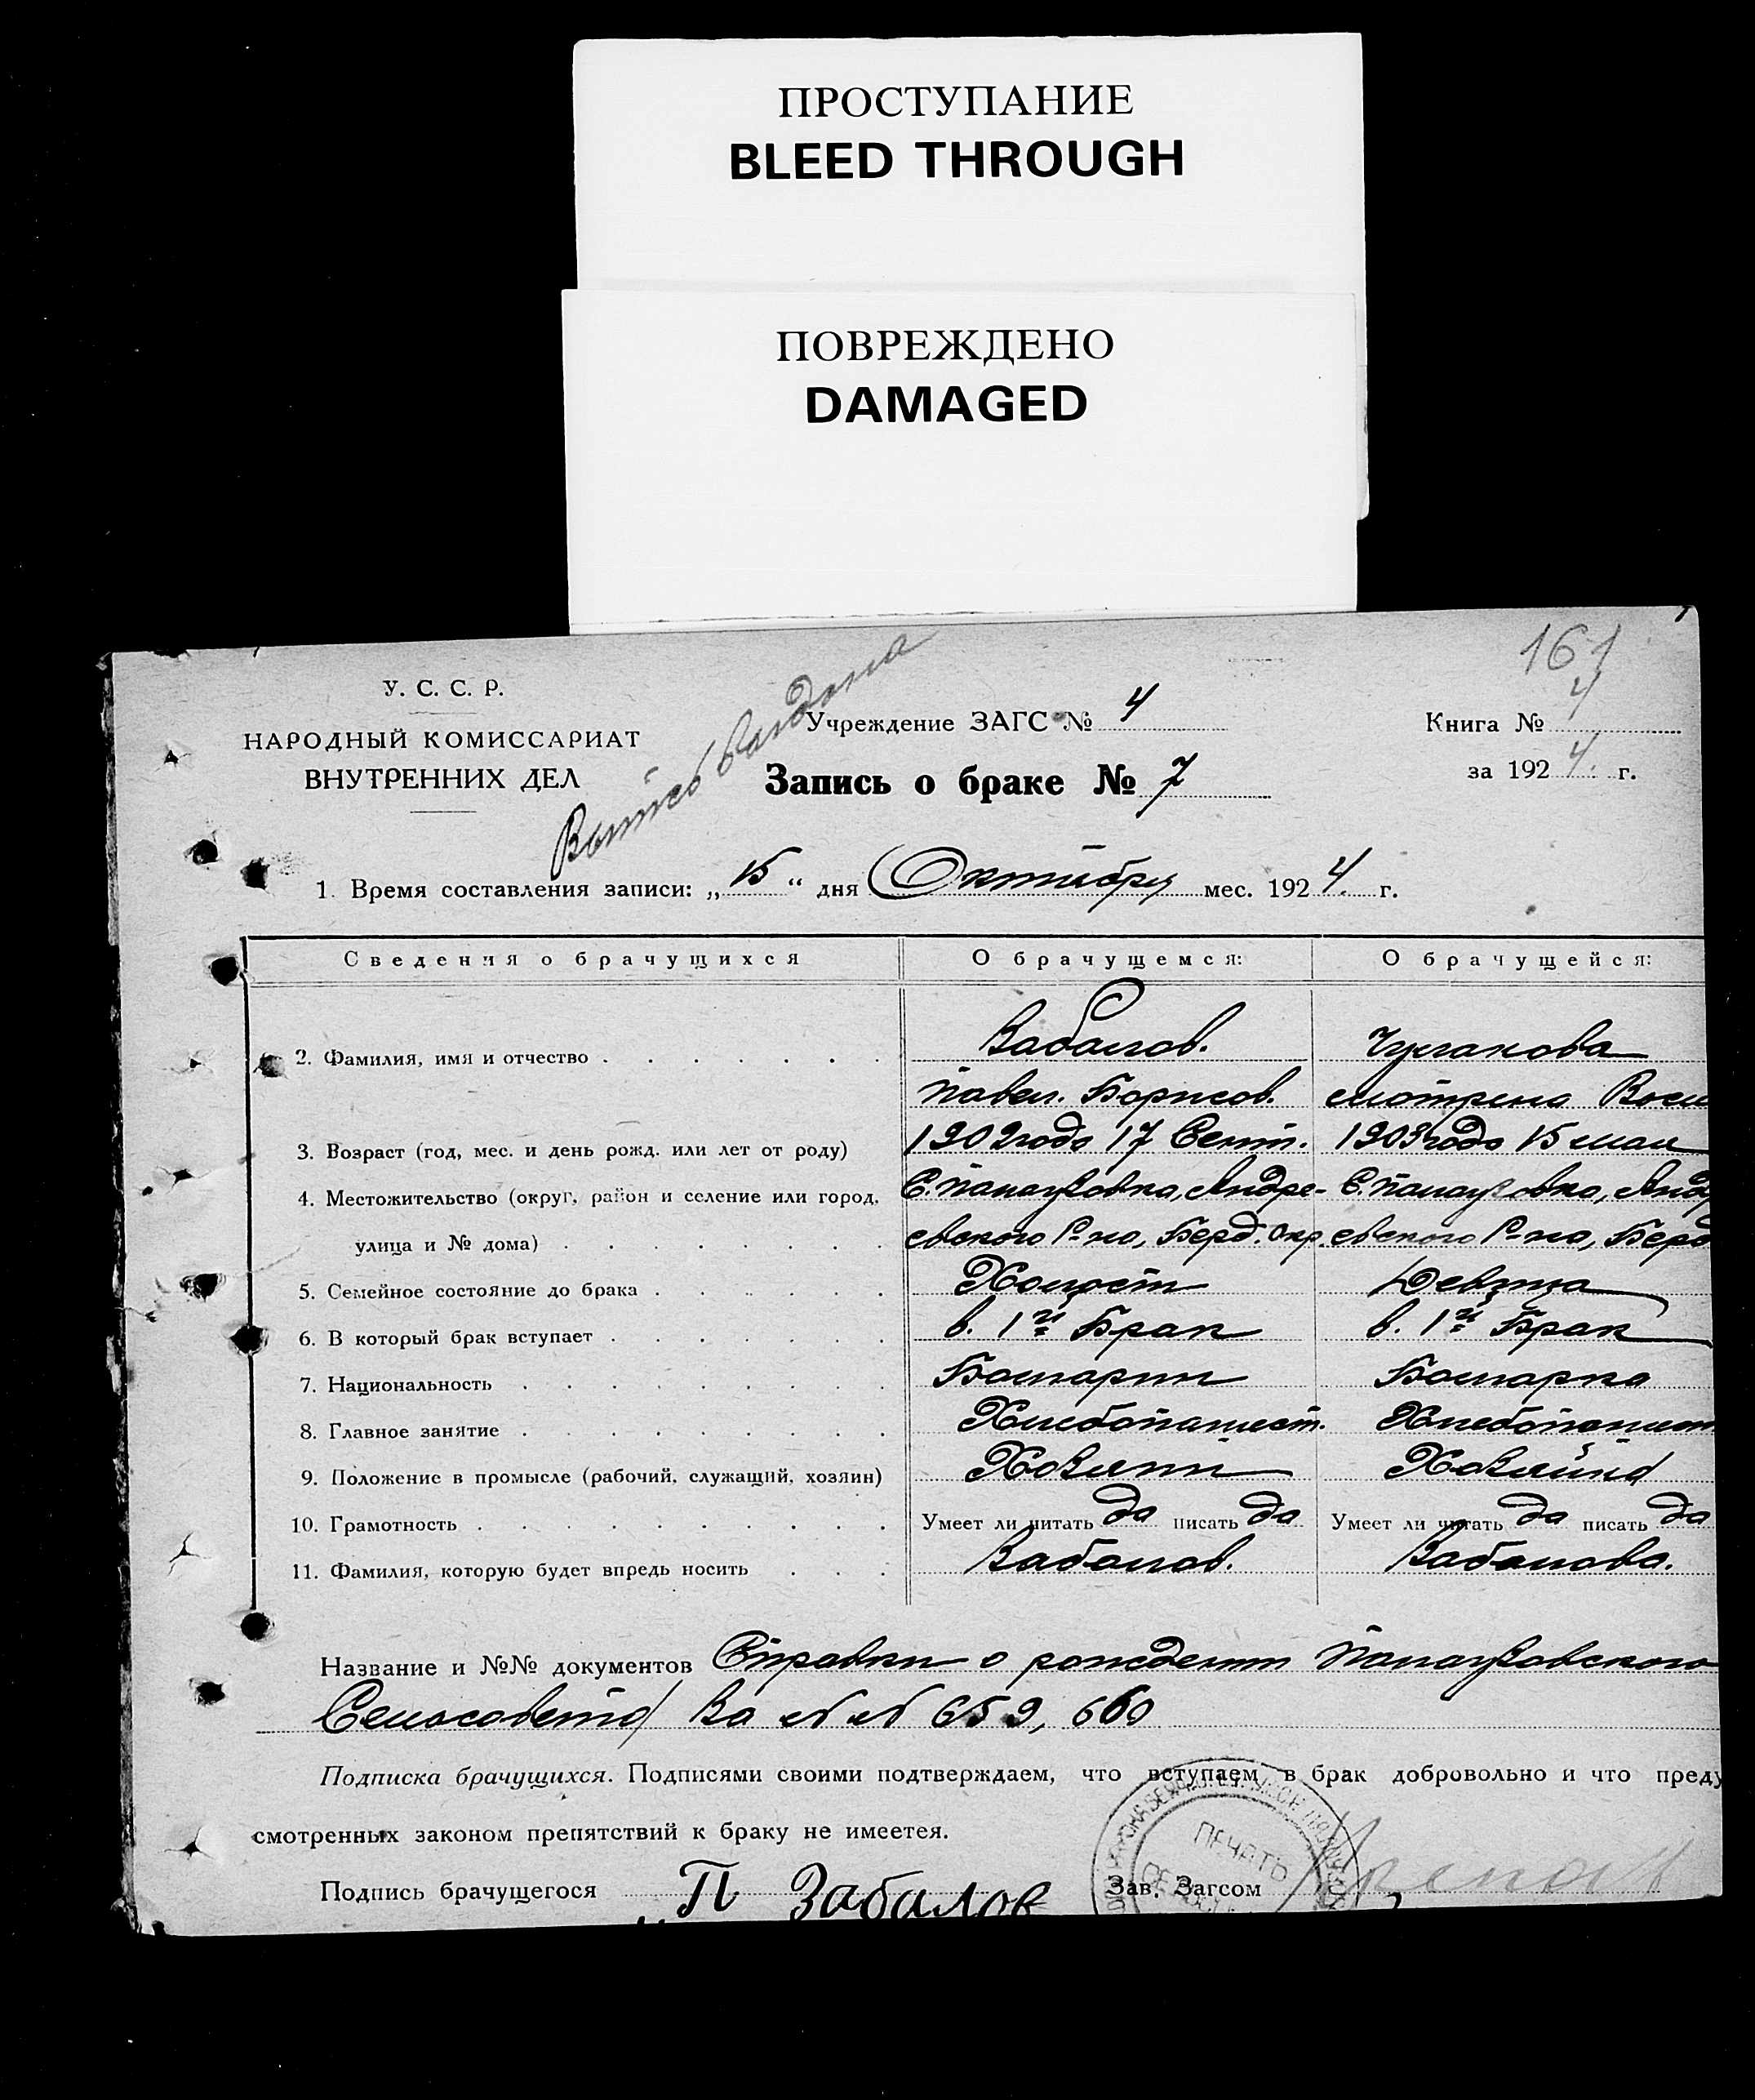 ПРОСТУПАНИЕ
BLEED THROUGH
ПОВРЕЖДЕНО
DAMAGED
161
У. С. С. Р.
НАРОДНЫЙ КОМИССАРИАТ
ВНУТРЕННИХ ДЕЛ
Учреждение ЗАГС № 4
Книга № 4
Запись о браке № 7
за 1924. г.
1. Время составления записи: „15“ дня Октября мес. 1924. г.
Сведения о брачущихся О брачущемся: О брачущейся:
2. Фамилия, имя и отчество Забалов. Чулакова
Павел. Борисов.
3. Возраст (год, мес. и день рожд. или лет от роду) 1902 года 17 Сент. 1903 года 15 мая
4. Местожительство (округ, район и селение или город, С. Палаузовка, Андре- С. Палаузовка, Андр
улица и № дома) евского Р-на, Берд. Окр. евского Р-на, Берд
5. Семейное состояние до брака Холост Девица
6. В который брак вступает в. 1й Брак в. 1й Брак
7. Национальность Болгарин Болгарка
8. Главное занятие Хлебопашест. Хлебопашест
9. Положение в промысле (рабочий, служащий, хозяин) Хозяин Хозяйка
10. Грамотность Умеет ли читать да писать да Умеет ли читать да писать да
11. Фамилия, которую будет впредь носить Забалов. Забалова.
Название и №№ документов Справки о рождении Палаузовского
Сельсовета За №№ 659, 660
Подписка брачущихся. Подписями своими подтверждаем, что вступаем в брак добровольно и что преду
смотренных законом препятствий к браку не имеетея.
ПЕЧАТЬ
Подпись брачущегося П Забалов Зав. Загсом